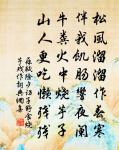 松風溜溜作春寒
伴我飢腸響夜闌
牛糞火中燒芋子
山人更吃懶殘殘
蘇軾除夕訪子野食燒
芋戲作